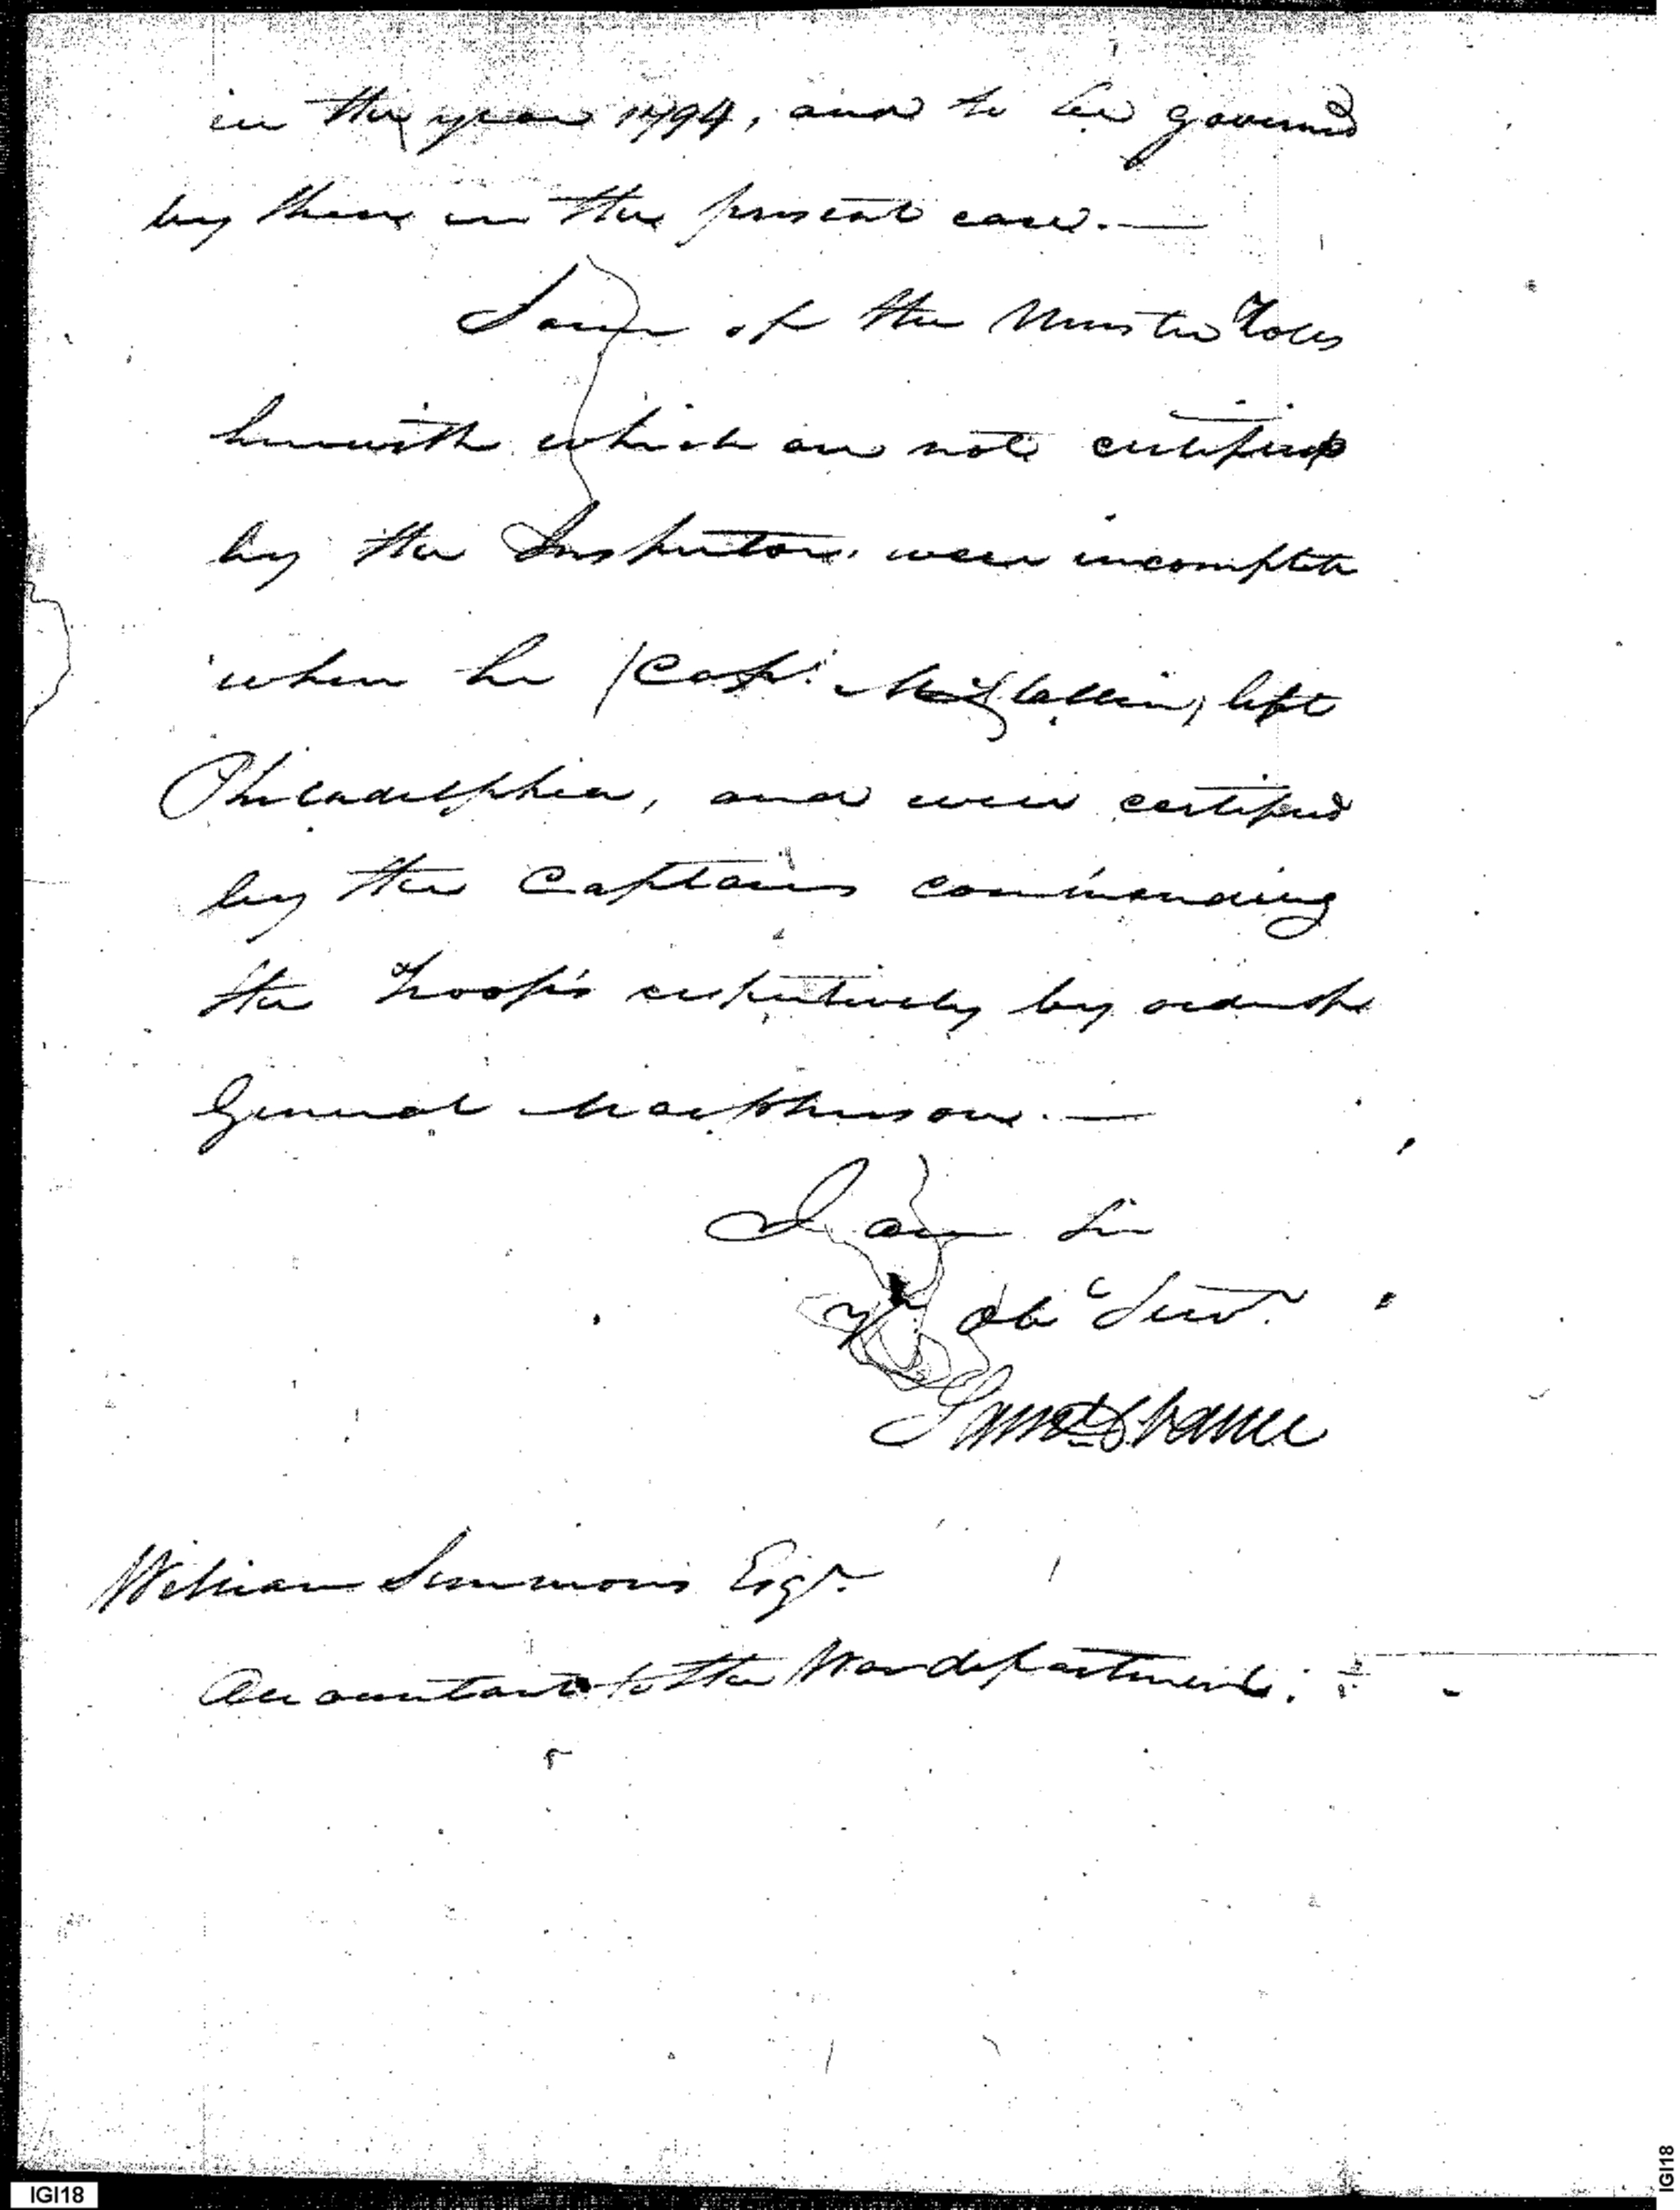 in the year 1794, and to be governed
by them in the present case. —
Some of the Muster Rolls
herewith which are not certified
by the Inspector, were incomplete
when he (Capt. left
Philadelphia, and were certified
by the Captains commanding
the Troops respectively by order of
General Macpherson. —
I am Sir
Yr. Ob Servt.
Saml Hodgdon
William Simmons Esqr.
Accountant to the War department.
IGI18
IGI18